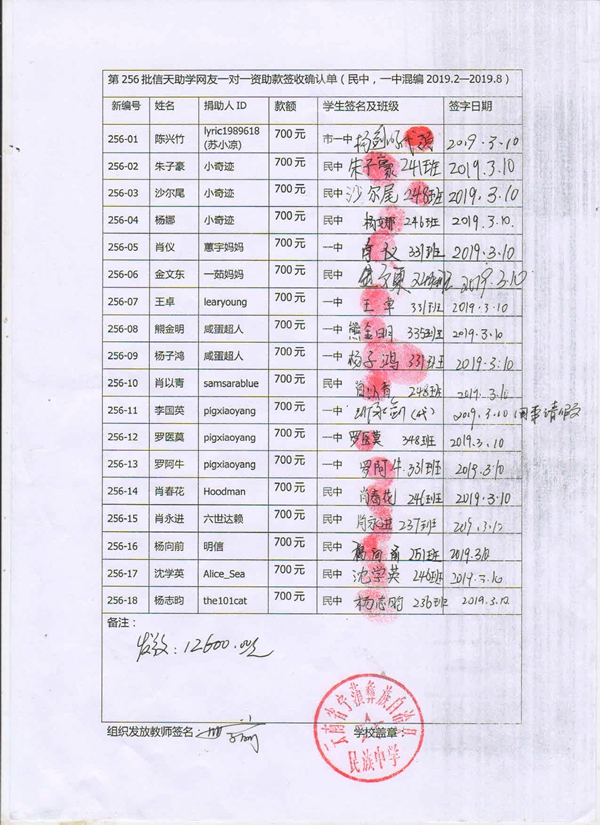 第256批信天助学网友一对一资助款签收确认单（民中，一中混编2019.2—2019.8）
新编号 姓名 捐助人ID 款额 学生签名及班级 签字日期
256-01 陈兴竹 lyric1989618 (苏小凉) 700元 市一中 2019.3.10
256-02 朱子豪 小奇迹 700元 民中 朱子豪 241班 2019.3.10
256-03 沙尔尾 小奇迹 700元 民中 沙尔尾 248班 2019.3.10
256-04 杨娜 小奇迹 700元 民中 杨娜 246班 2019.3.10.
256-05 肖仪 蕙宇妈妈 700元 一中 肖仪 331班 2019.3.10
256-06 金文东 一茹妈妈 700元 民中 2019.3.10
256-07 王卓 learyoung 700元 一中 王卓 331班 2019.3.10
256-08 熊金明 咸蛋超人 700元 一中 熊金明 335班 2019.3.10
256-09 杨子鸿 咸蛋超人 700元 一中 杨子鸿 331班 2019.3.10
256-10 肖以青 samsarablue 700元 民中 肖以青 248班 2019.3.10
256-11 李国英 pigxiaoyang 700元 一中 (代) 2019.3.10 因事请假
256-12 罗医莫 pigxiaoyang 700元 一中 罗医莫 348班 2019.3.10
256-13 罗阿牛 pigxiaoyang 700元 一中 罗阿牛 331班 2019.3.10
256-14 肖春花 Hoodman 700元 民中 肖春花 246班 2019.3.10
256-15 肖永进 六世达赖 700元 民中 肖永进 237班 2019.3.12
256-16 杨向前 明信 700元 民中 杨向前 251班 2019.3.
256-17 沈学英 Alice_Sea 700元 民中 沈学英 246班 2019.3.10
256-18 杨志昀 the101cat 700元 民中 杨志昀 236班 2019.3.12
备注：
发放：12600.
组织发放教师签名： 学校盖章
云南省宁蒗彝族自治县
民族中学